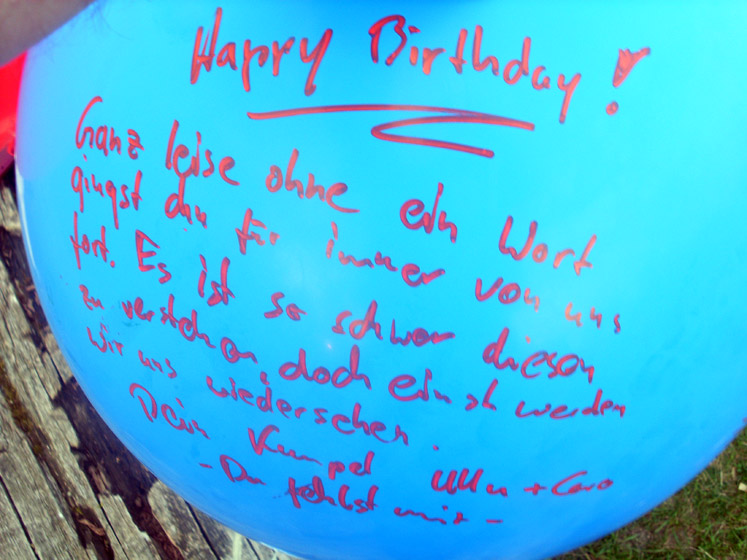 Happy Birthday!
Ganz leise ohne ein Wort
gingst du für immer von uns
fort. Es ist so schwer diesen
zu verstehen, doch einst werden
wir uns wiedersehen.
Dein Kumpel + Caro
- Du fehlst mir -